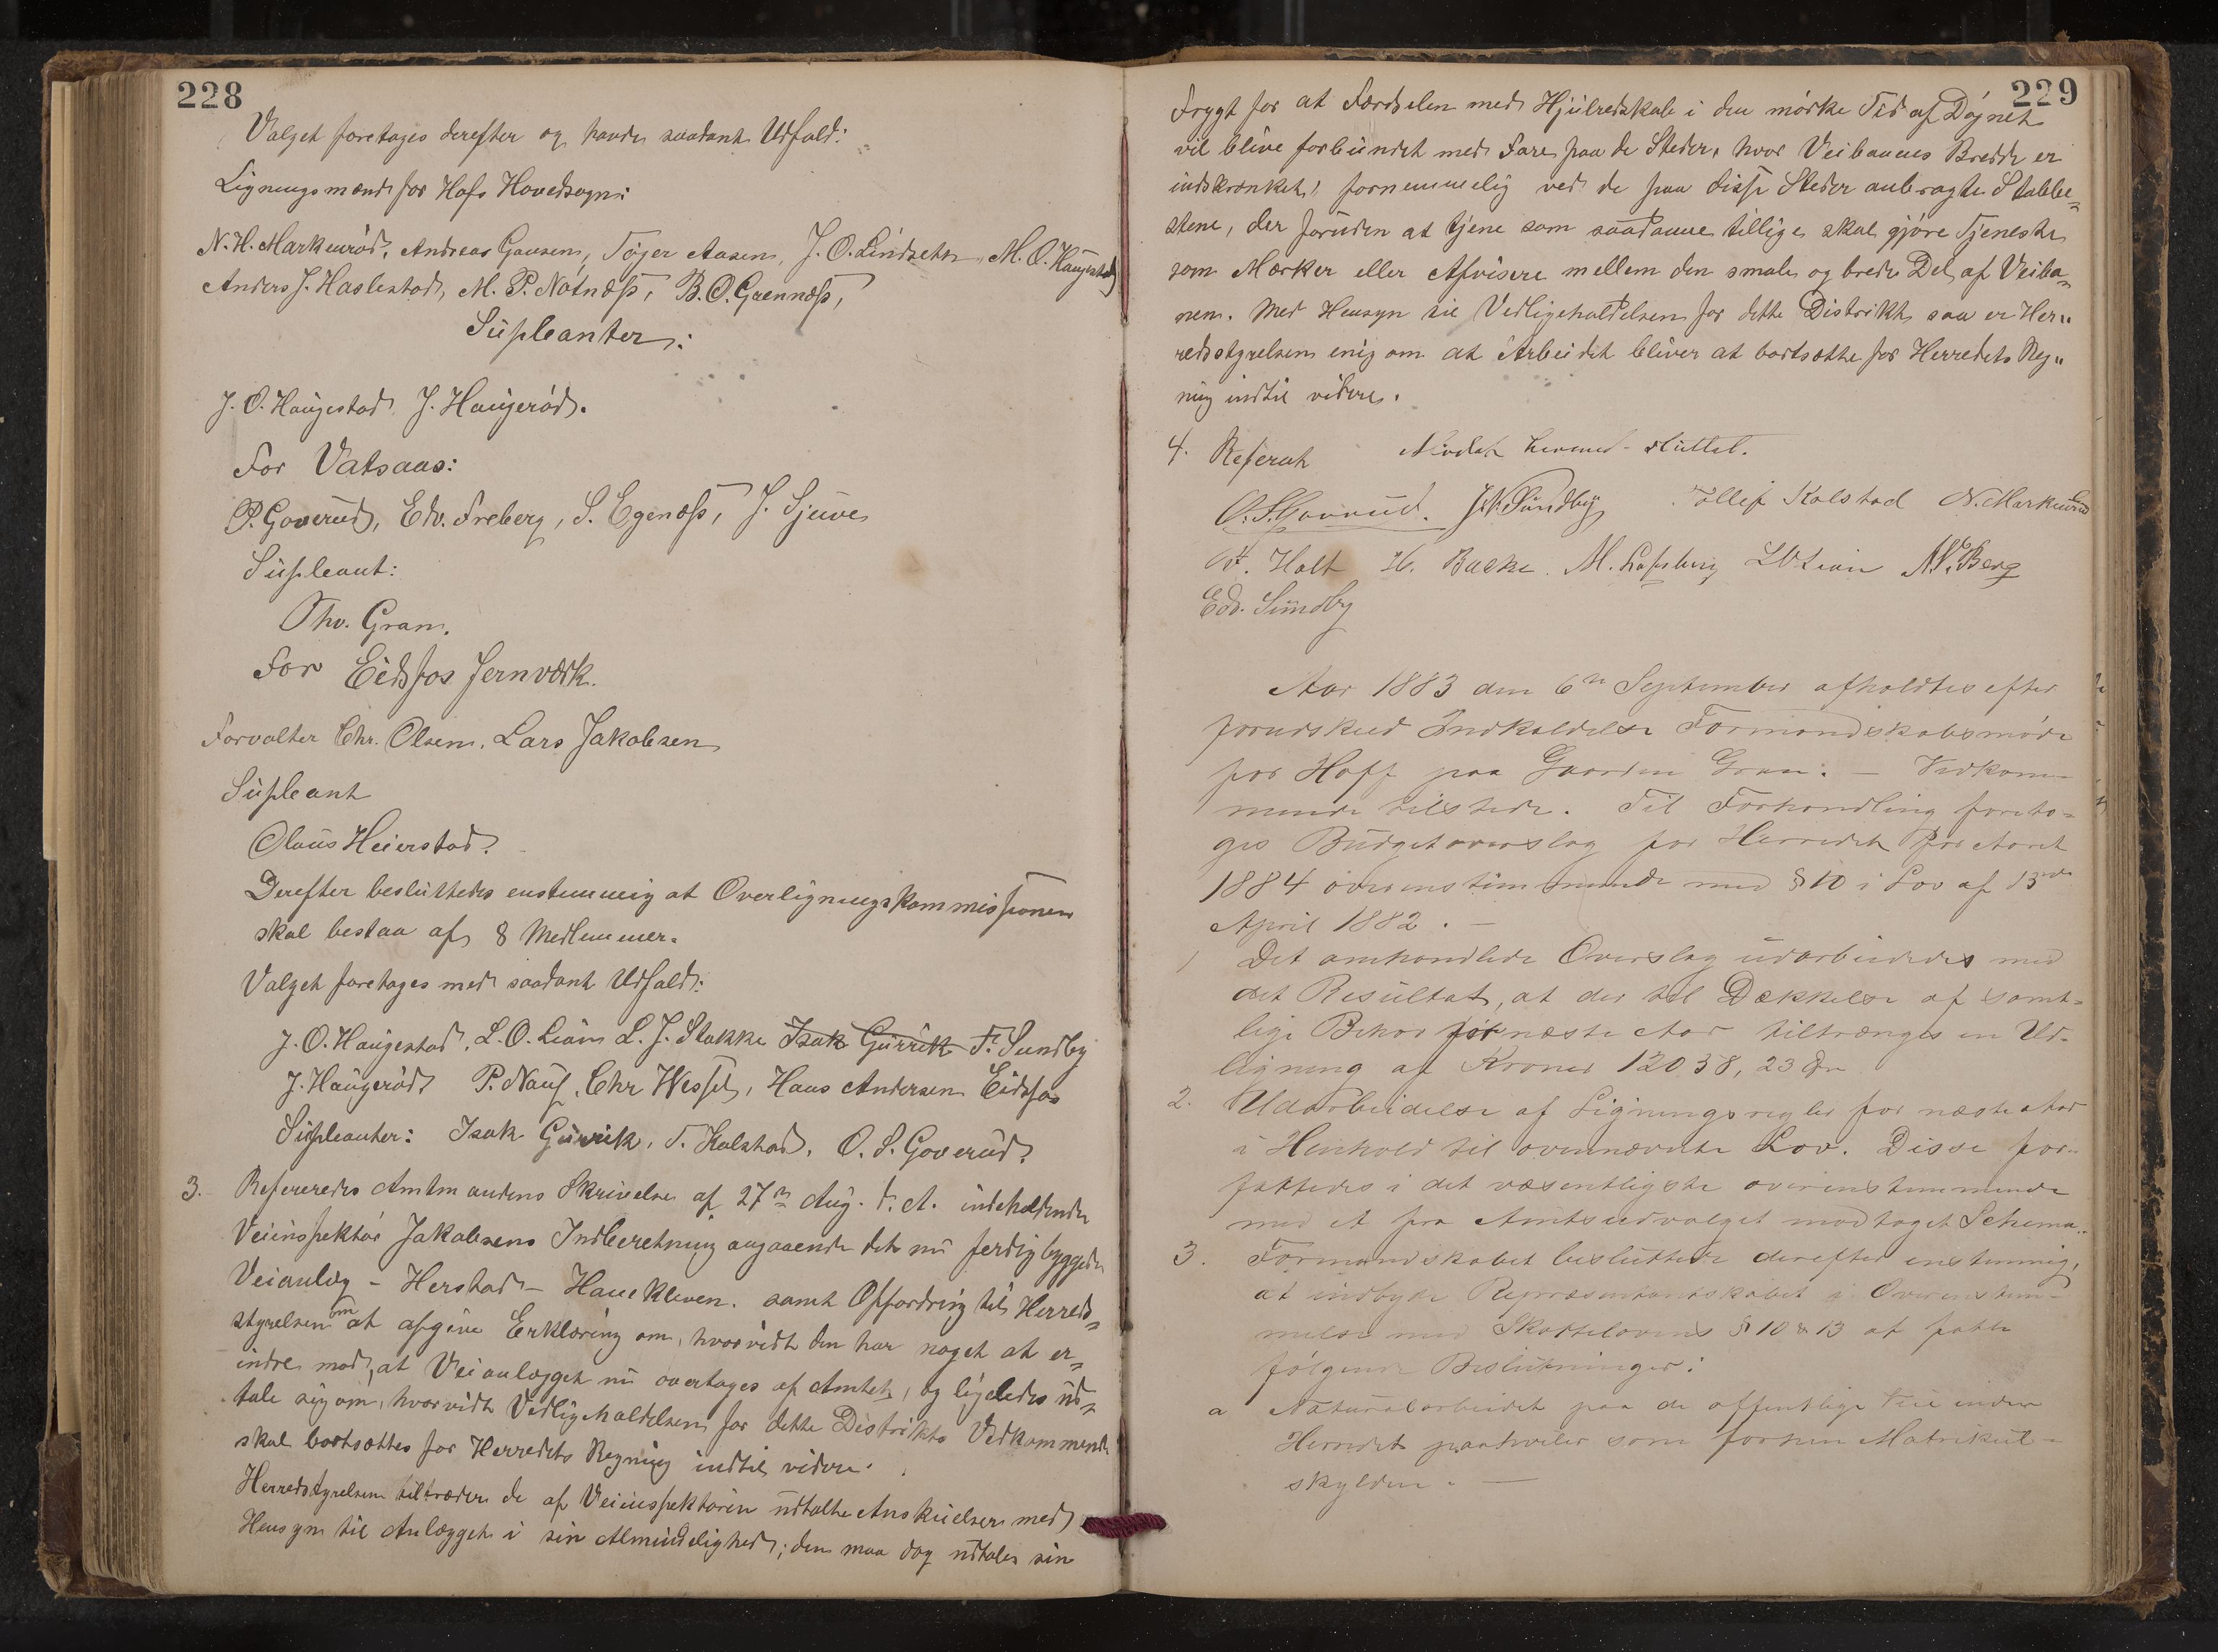 228
Valget foretages derefter og havde saadant Udfald:
Ligningsmænd for Hofs Hovedsogn:
N. H. Markerud, Andreas Gausen, Tøger Aasen, J. O. Lindseth, M. O. Haugestad
Anders J. Haslestad, M. P. Nøtnæss, B. O. Grennæss,
Supleanter:
J. O. Haugestad, J. Haugerød.
For Vatsaas:
P. Goverud, Edv. Freberg, S. Egenæss, J. Sjuve
Supleant:
Thv. Gran.
For Eidsfos Jernværk.
Forvalter Chr. Olsen, Lars Jakobsen
Supleant
Olaus Heierstad.
Derefter besluttedes enstemmig at Overligningskommissionen
skal bestaa af 8 Medlemmer.
Valget foretages med saadant Udfald:
J. O. Haugestad, L. O. Liam L. J. Stakke Isak Gurrik F. Sundby
J. Haugerød P. Nauf, Chr Wessel, Hans Andersen Eidsfos
Supleanter: Isak Gurrik, T. Kolstad, O. S. Goverud.
3. Refereredes Amtmandens Skrivelse af 27n Aug. d. A. indeholdende
Veiinspektør Jakobsens Indberetning angaaende det nu ferdig byggede
Veianlæg - Herstad - Hanekleven. samt Opfordring til Herreds-
styrelsen om at afgive Erklæring om, hvorvidt den har noget at er-
indre mod, at Veianlægget nu overtages af Amtet, og ligeledes ud-
tale sig om, hvorvidt Vedligeholdelsen for dette Distrikts Vedkommende
skal bortsættes for Herredets Regning indtil videre.
Herredstyrelsen tiltræder de af Veiinspektøren udtalte Anskuelser med
Hensyn til Anlægget i sin Almindelighed; den maa dog udtale sin
229
Frygt for at Færdselen med Hjulredskab i den mørke Tid af Døgnet
vil blive forbundet med Fare paa de Steder, hvor Veibanens Bredde er
indskrænket, fornemmelig ved de paa disse Steder anbragte Stabbe-
stene, der foruden at tjene som saadanne tillige skal gjøre Tjeneste
som Mærker eller Afvisere mellem den smale og brede Del af Veiba-
nen. Med Hensyn til Vedligeholdelsen for dette Distrikt, saa er Her-
redsstyrelsen enig om at Arbeidet bliver at bortsætte for Herredets Reg-
ning indtil videre.
4. Referat Mødet hermed sluttet.
O. S. Goverud. J. N. Sundby Tollef Kolstad N. Markerud
Holt H. Bakke. M. L. O. Liam M. Berg
Edv. Sundby
Aar 1883 den 6te September afholdtes efter
forudskeed Indkaldelse Formandskabsmøde
for Hoff paa Gaarden Gran. - Vedkom-
mende tilstede. Til Forhandling foreto-
ges Budgetoverslag for Herredet for Aaret
1884 overensstemmende med § 10 i Lov af 15de
April 1882. -
1 Det omhandlede Overslag udarbeidedes med
det Resultat, at der til Dækkelse af samt-
lige Behov for næste Aar tiltrænges en Ud-
ligning af Kroner 12038,23 Øre
2. Udarbeidelse af Ligningsregler for næste Aar
i Henhold til ovennævnte Lov. Disse for-
fattedes i det væsentligste overensstemmende
med et fra Amtsudvalget modtaget Schema.
3. Formandskabet besluttede derefter enstemmig,
at indbyde Repræsentantskabet i Overenstem-
melse med Skattelovens § 10 & 13 at fatte
følgende Beslutninger:
a Naturalarbeidet paa de offentlige Veie inden
Herredet paahviler som forhen Matrikul-
skylden. -